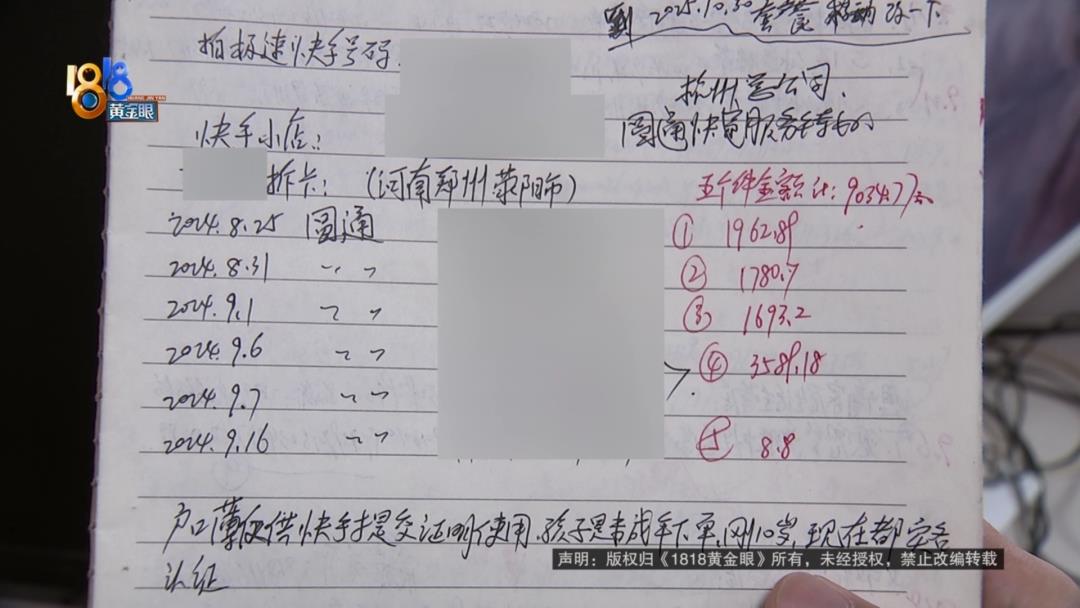 2025.10.30 套餐 移动 改一下
拍标速快手号码
1818
HUANG JIN YAN
黄金眼
杭州总公司.
快手小店:
圆通快递服务
拆卡: (河南郑州荥阳市)
五个件金额计: 9034.77元
2024.8.25 圆通
① 1962.89
2024.8.31 〃 〃
② 1780.7
2024.9.1 〃 〃
③ 1693.2
2024.9.6 〃 〃
④ 3589.18
2024.9.7 〃 〃
2024.9.16 〃 〃
⑤ 8.8
户口薄仅供快手提交证明使用.孩子是未成年下单,刚10岁,现在都实名
认证
声明：版权归《1818黄金眼》所有，未经授权，禁止改编转载